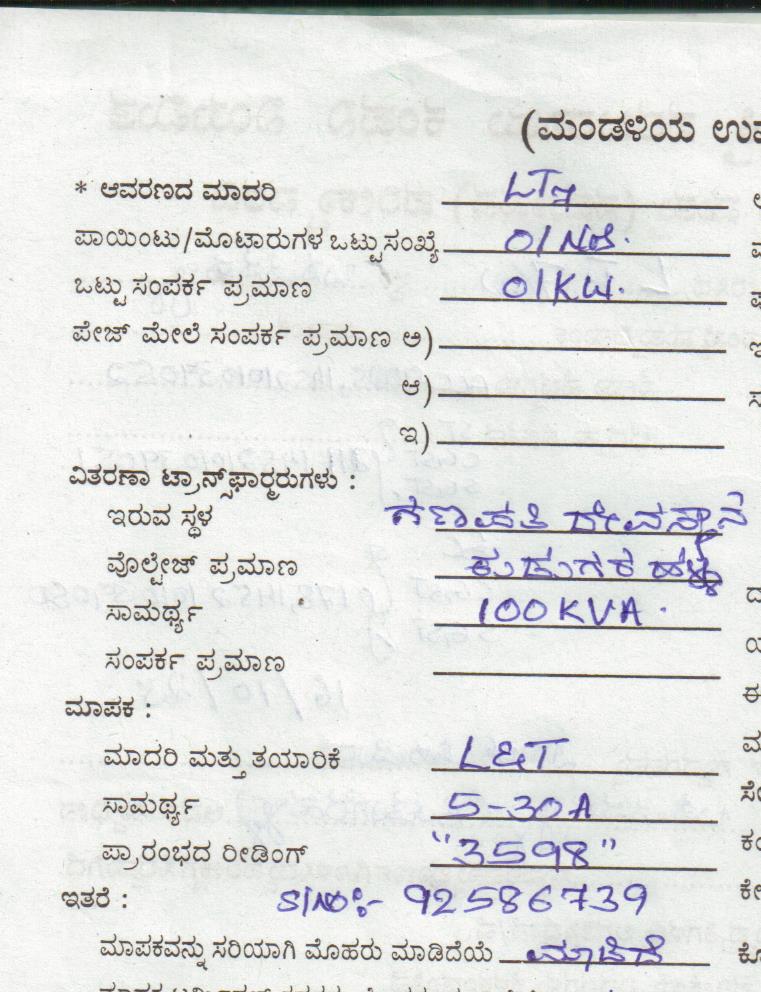 (ಮಂಡಳಿಯ ಉಪ
* ಆವರಣದ ಮಾದರಿ LT
ಪಾಯಿಂಟು/ಮೊಟಾರುಗಳ ಒಟ್ಟು ಸಂಖ್ಯೆ 01 No.
ಒಟ್ಟು ಸಂಪರ್ಕ ಪ್ರಮಾಣ 01KW.
ಪೇಜ್ ಮೇಲೆ ಸಂಪರ್ಕ ಪ್ರಮಾಣ ಅ)
ಆ)
ಇ)
ವಿತರಣಾ ಟ್ರಾನ್ಸ್‌ಫಾರ್‍ಮರುಗಳು :
ಇರುವ ಸ್ಥಳ ಗಣಪತಿ ದೇವಸ್ಥಾನ
ವೊಲ್ಟೇಜ್ ಪ್ರಮಾಣ
ಸಾಮರ್ಥ್ಯ 100KVA.
ಸಂಪರ್ಕ ಪ್ರಮಾಣ
ಮಾಪಕ :
ಮಾದರಿ ಮತ್ತು ತಯಾರಿಕೆ L&T
ಸಾಮರ್ಥ್ಯ 5-30A
ಪ್ರಾರಂಭದ ರೀಡಿಂಗ್ "3598"
ಇತರೆ : S/No:- 92586739
ಮಾಪಕವನ್ನು ಸರಿಯಾಗಿ ಮೊಹರು ಮಾಡಿದೆಯೆ ಮಾಡಿದೆ